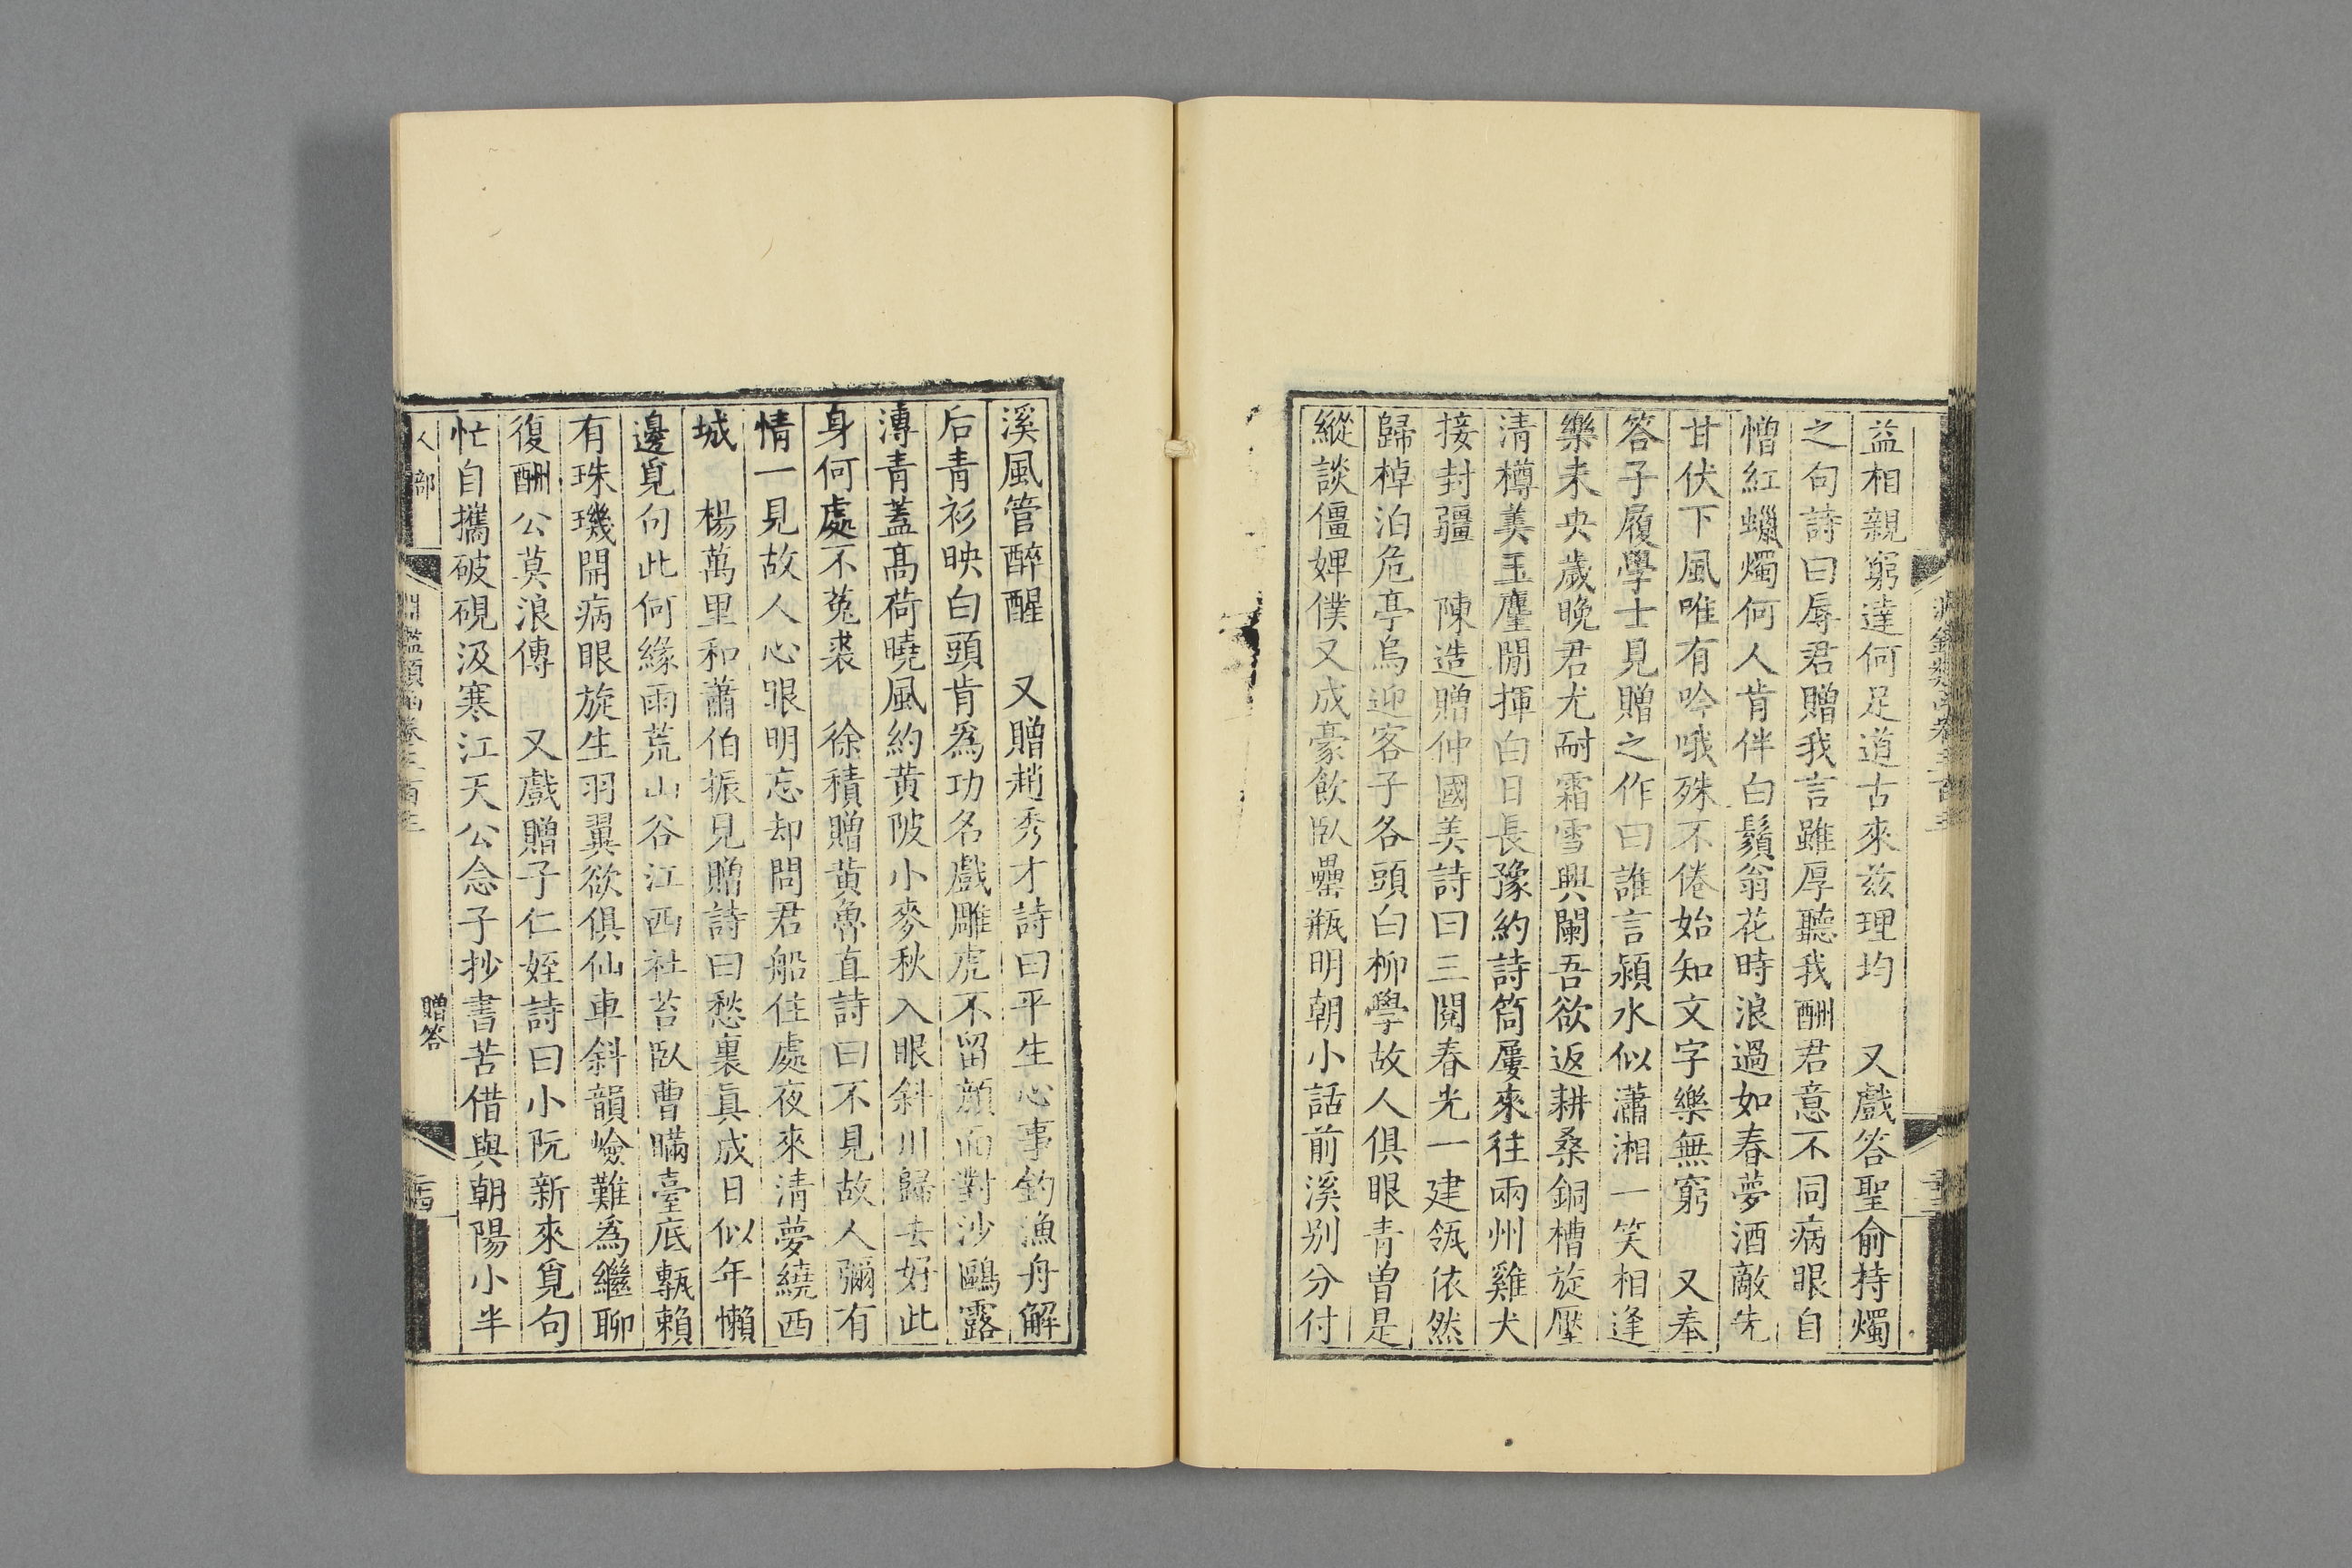 益相親窮達何足道古來茲理均　又戲答聖俞持燭
之句詩曰辱君贈我言雖厚聽我酬君意不同病眼自
憎紅蠟燭何人肯伴白鬚翁花時浪過如春夢酒敵先
甘伏下風唯有吟哦殊不倦始知文字樂無窮　又奉
答子履學士見贈之作曰誰言潁水似瀟湘一笑相逢
樂未央歲晚君尤耐霜雪興闌吾欲返耕桑銅槽旋壓
清樽美玉麈閒揮白日長豫約詩筒屢來往兩州雞犬
接封疆　陳造贈仲國美詩曰三閱春光一建瓴依然
歸棹泊危亭烏迎客子各頭白柳學故人俱眼青曽是
縱談僵婢僕又成豪飲臥罍瓶明朝小話前溪别分付
溪風管醉醒　又贈趙秀才詩曰平生心事釣漁舟解
后青衫映白頭肯爲功名戲雕虎不留顔面對沙鷗露
漙青蓋高荷曉風約黄陂小麥秋入眼斜川歸去好此
身何處不菟裘　徐積贈黄魯直詩曰不見故人彌有
情一見故人心眼明忘却問君船住處夜來清夢繞西
城　楊萬里和蕭伯振見贈詩曰愁裏眞成日似年懶
邊覓句此何緣雨荒山谷江西社苔臥曹瞞臺底甎賴
有珠璣開病眼旋生羽翼欲俱仙車斜韻嶮難爲繼聊
復酬公莫浪傳　又戲贈子仁姪詩曰小阮新來覓句
忙自攜破硯汲寒江天公念子抄書苦借與朝陽小半
人部　淵鑑類函卷三百三　贈答